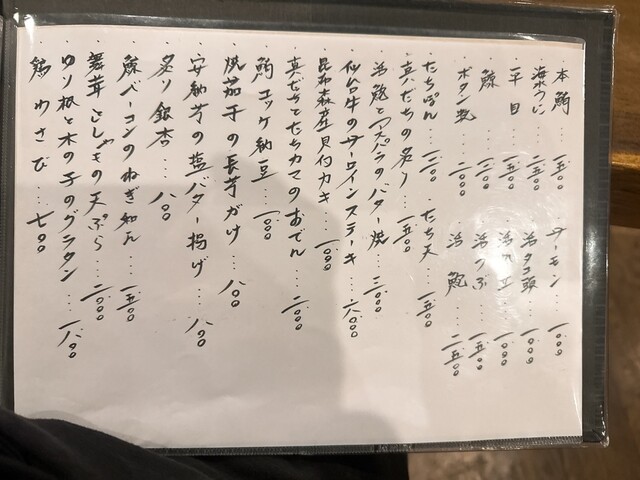 本鮪……一、五〇〇
サーモン……一、〇〇〇
海水うに……二、五〇〇
活タコ頭……一、〇〇〇
平目……一、五〇〇
鯨……一、五〇〇
活つぶ……一、五〇〇
ボタン海老……二、〇〇〇
活鮑……二、五〇〇
たちぽん……
たち天……一、五〇〇
真だちの炙り……一、五〇〇
活鮑とアスパラのバター焼……三、〇〇〇
仙台牛のサーロインステーキ……
昆布森産 貝付カキ……一、〇〇〇
真だちとたちカマのおでん……二、〇〇〇
鮪ユッケ納豆……一、〇〇〇
焼茄子の長芋がけ……八〇〇
安納芋の塩バター揚げ……八〇〇
炙り銀杏……八〇〇
鯨ベーコンのねぎ和え……一、五〇〇
舞茸とししゃもの天ぷら……二、〇〇〇
ゆり根と木の子のグラタン……一、八〇〇
わさび……七〇〇